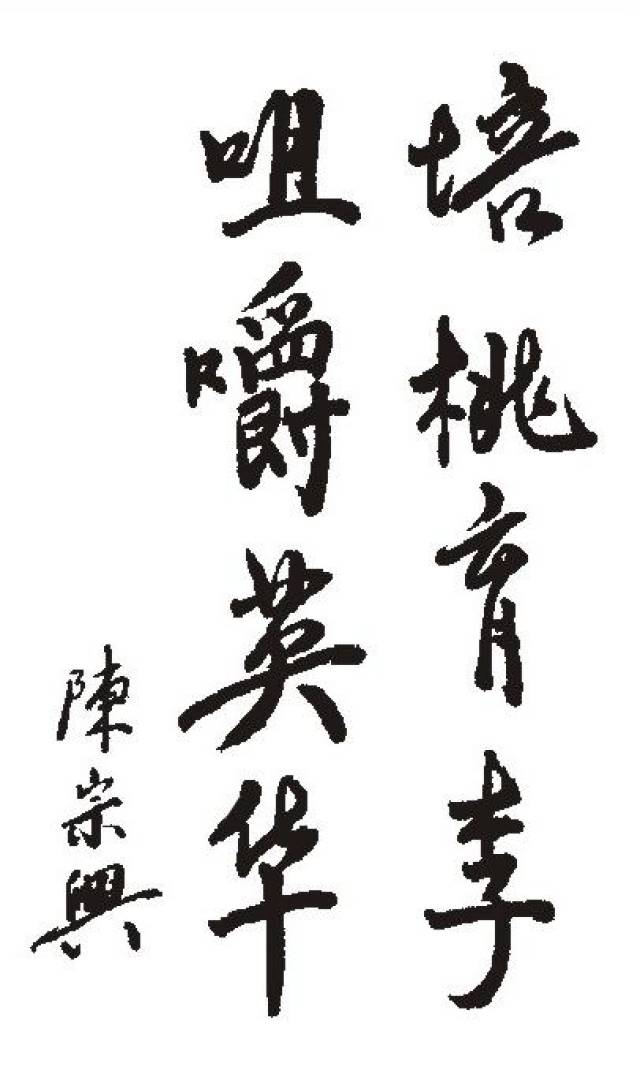 培桃育李
咀嚼英华
陳宗興